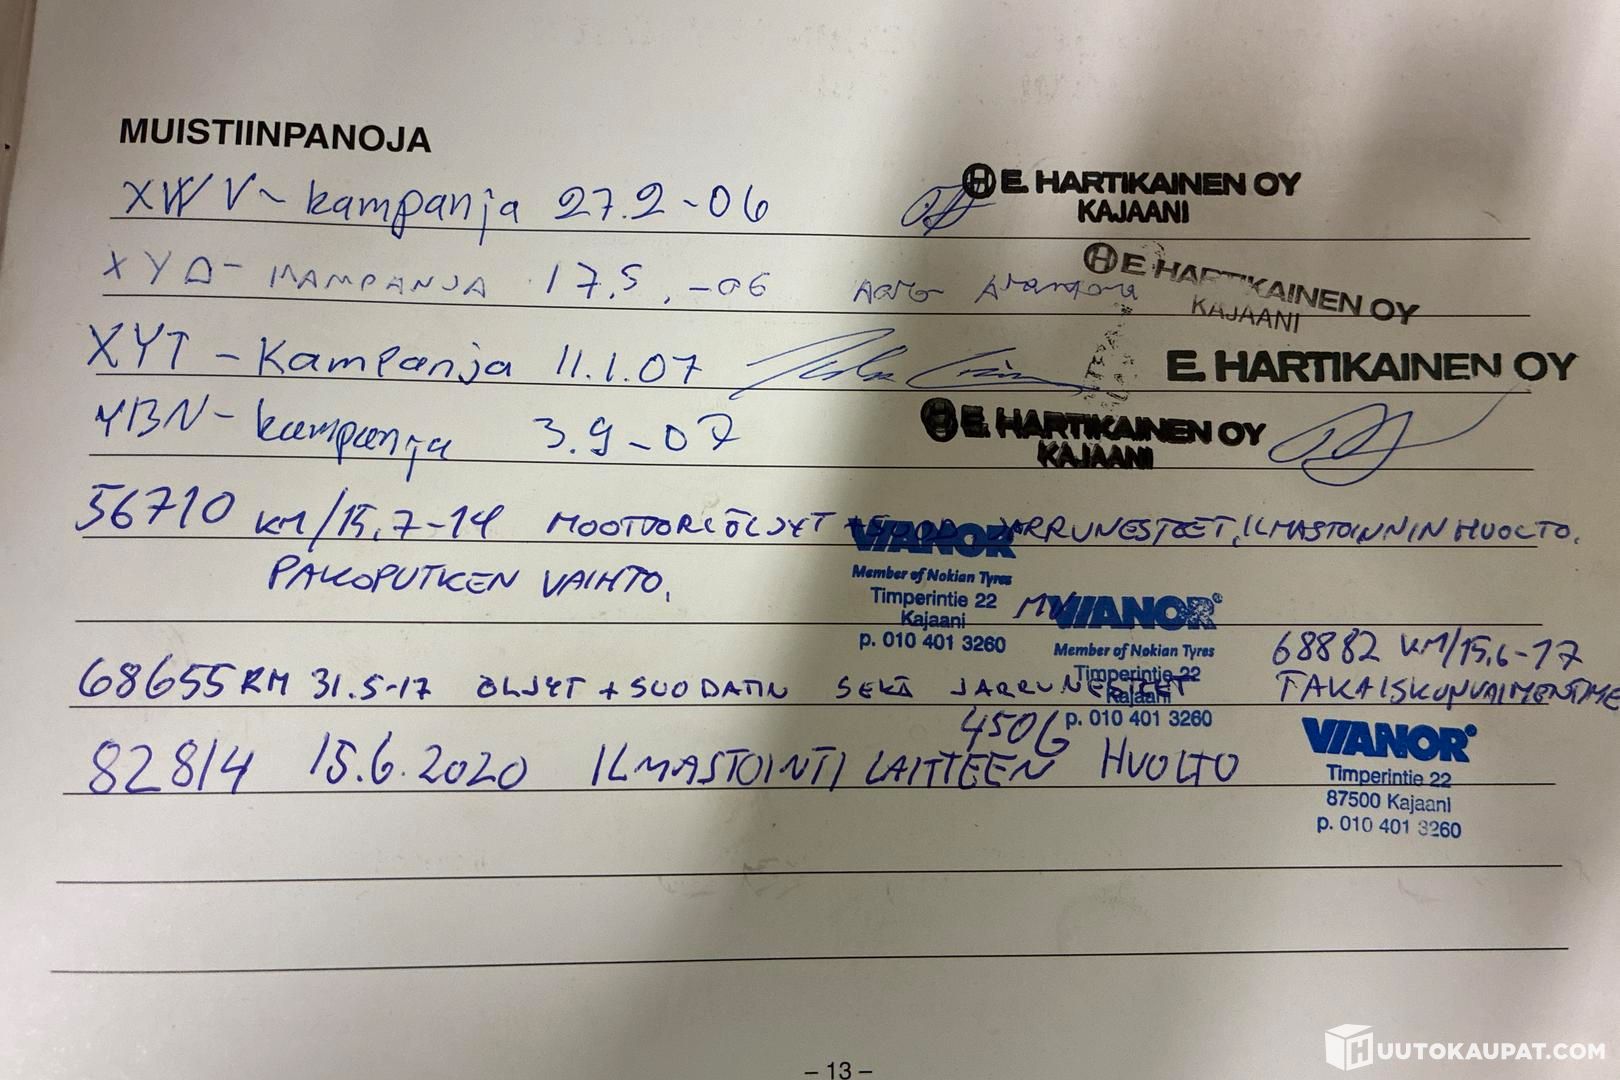 MUISTIINPANOJA
XWV- kampanja 27.2-06 H E. HARTIKAINEN OY
KAJAANI
XYD- KAMPANJA 17.5.-06 H E. HARTIKAINEN OY
KAJAANI
XYT - Kampanja 11.1.07 E. HARTIKAINEN OY
YBN- kampanja 3.9-07 H E. HARTIKAINEN OY
KAJAANI
56710 KM/15.7-14 MOOTTORIÖLJYT + SUOD. JARRUNESTEET, ILMASTOINNIN HUOLTO.
PAKOPUTKEN VAIHTO.
VIANOR
Member of Nokian Tyres
Timperintie 22
Kajaani
p. 010 401 3260
VIANOR
Member of Nokian Tyres
Timperintie 22
Kajaani
p. 010 401 3260
68882 KM/15.6-17
TAKAISKUNVAIMENTIME
68655 KM 31.5-17 ÖLJYT + SUODATIN SEKÄ JARRUNESTEET
4506
82814 15.6.2020 ILMASTOINTI LAITTEEN HUOLTO
VIANOR
Timperintie 22
87500 Kajaani
p. 010 401 3260
- 13 -
HUUTOKAUPAT.COM